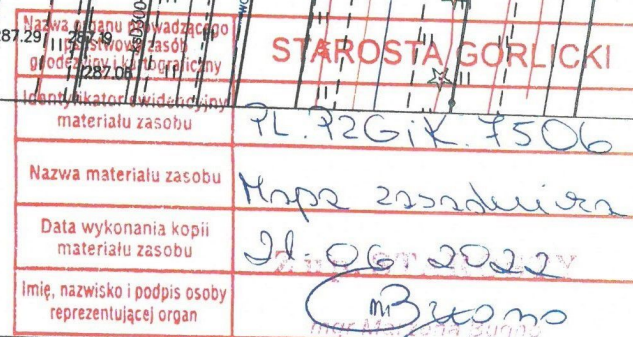 287.29
287.19
287.08
Nazwa organu prowadzącego
państwowy zasób
geodezyjny i kartograficzny
STAROSTA GORLICKI
Identyfikator ewidencyjny
materiału zasobu
PL.PZGiK.7506
Nazwa materiału zasobu
Mapa zasadnicza
Data wykonania kopii
materiału zasobu
21 06 2022
Imię, nazwisko i podpis osoby
reprezentującej organ
mgr